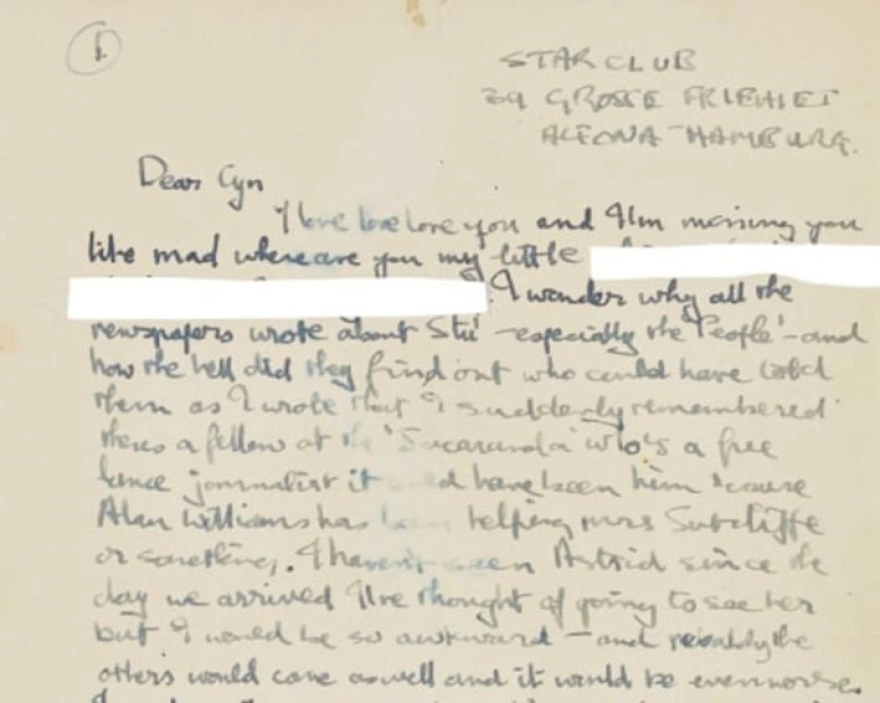 1
STAR CLUB
39 GROSSE FRIEHIET
ALTONA-HAMBURG.
Dear Cyn
I love love love you and I'm missing you
like mad where are you my little
. I wonder why all the
newspapers wrote about Stu' -especially the 'People'- and
how the hell did they find out who could have told
them as I wrote that I suddenly remembered
theres a fellow at the 'Jacaranda' who's a free
lance journalist it have been him 'cause
Alan Williams has been helping mrs Sutcliffe
or something. I haven't seen Astrid since the
day we arrived I've thought of going to see her
but I would be so awkward - and probably the
others would come aswell and it would be even worse.